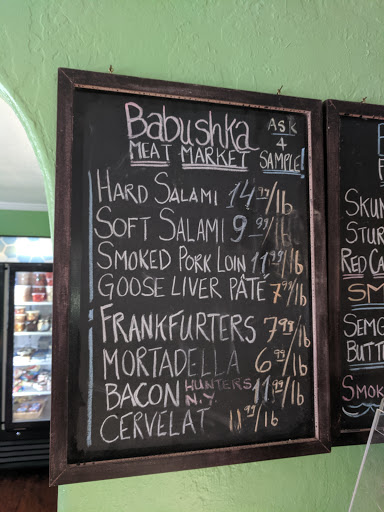 Babushka
MEAT MARKET
ASK
4
SAMPLE!
HARD SALAMI 14.99/lb
SOFT SALAMI 9.99/lb
SMOKED PORK LOIN 11.99/lb
GOOSE LIVER PÂTÉ 7.99/lb
FRANKFURTERS 7.99/lb
MORTADELLA 6.99/lb
BACON HUNTERS N.Y. 11.99/lb
CERVELAT 11.99/lb
SKUM
STUR
RED CA
SM
SEMG
BUTT
SMOK